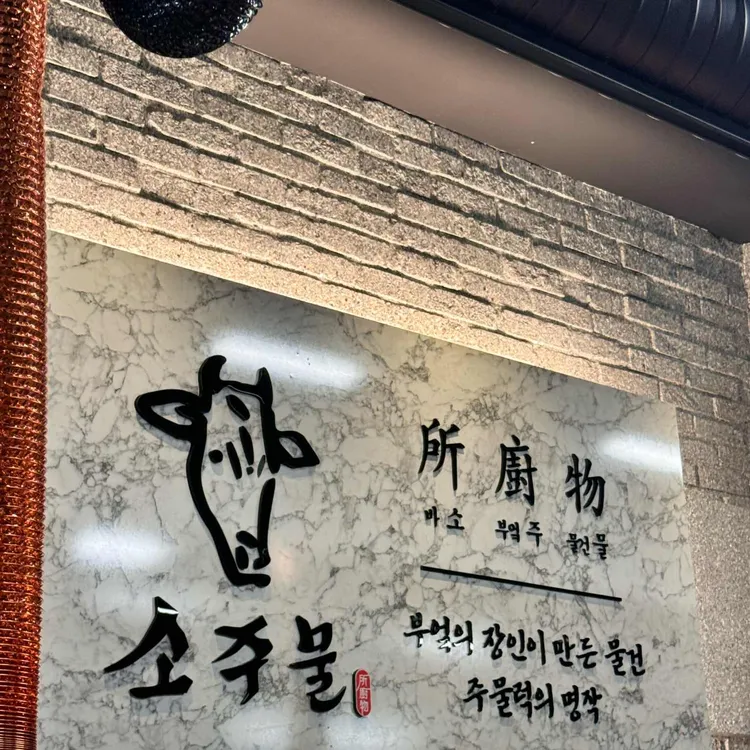 소주물
所廚物
所 廚 物
바 소 부엌 주 물건 물
부엌의 장인이 만든 물건
주물럭의 명작